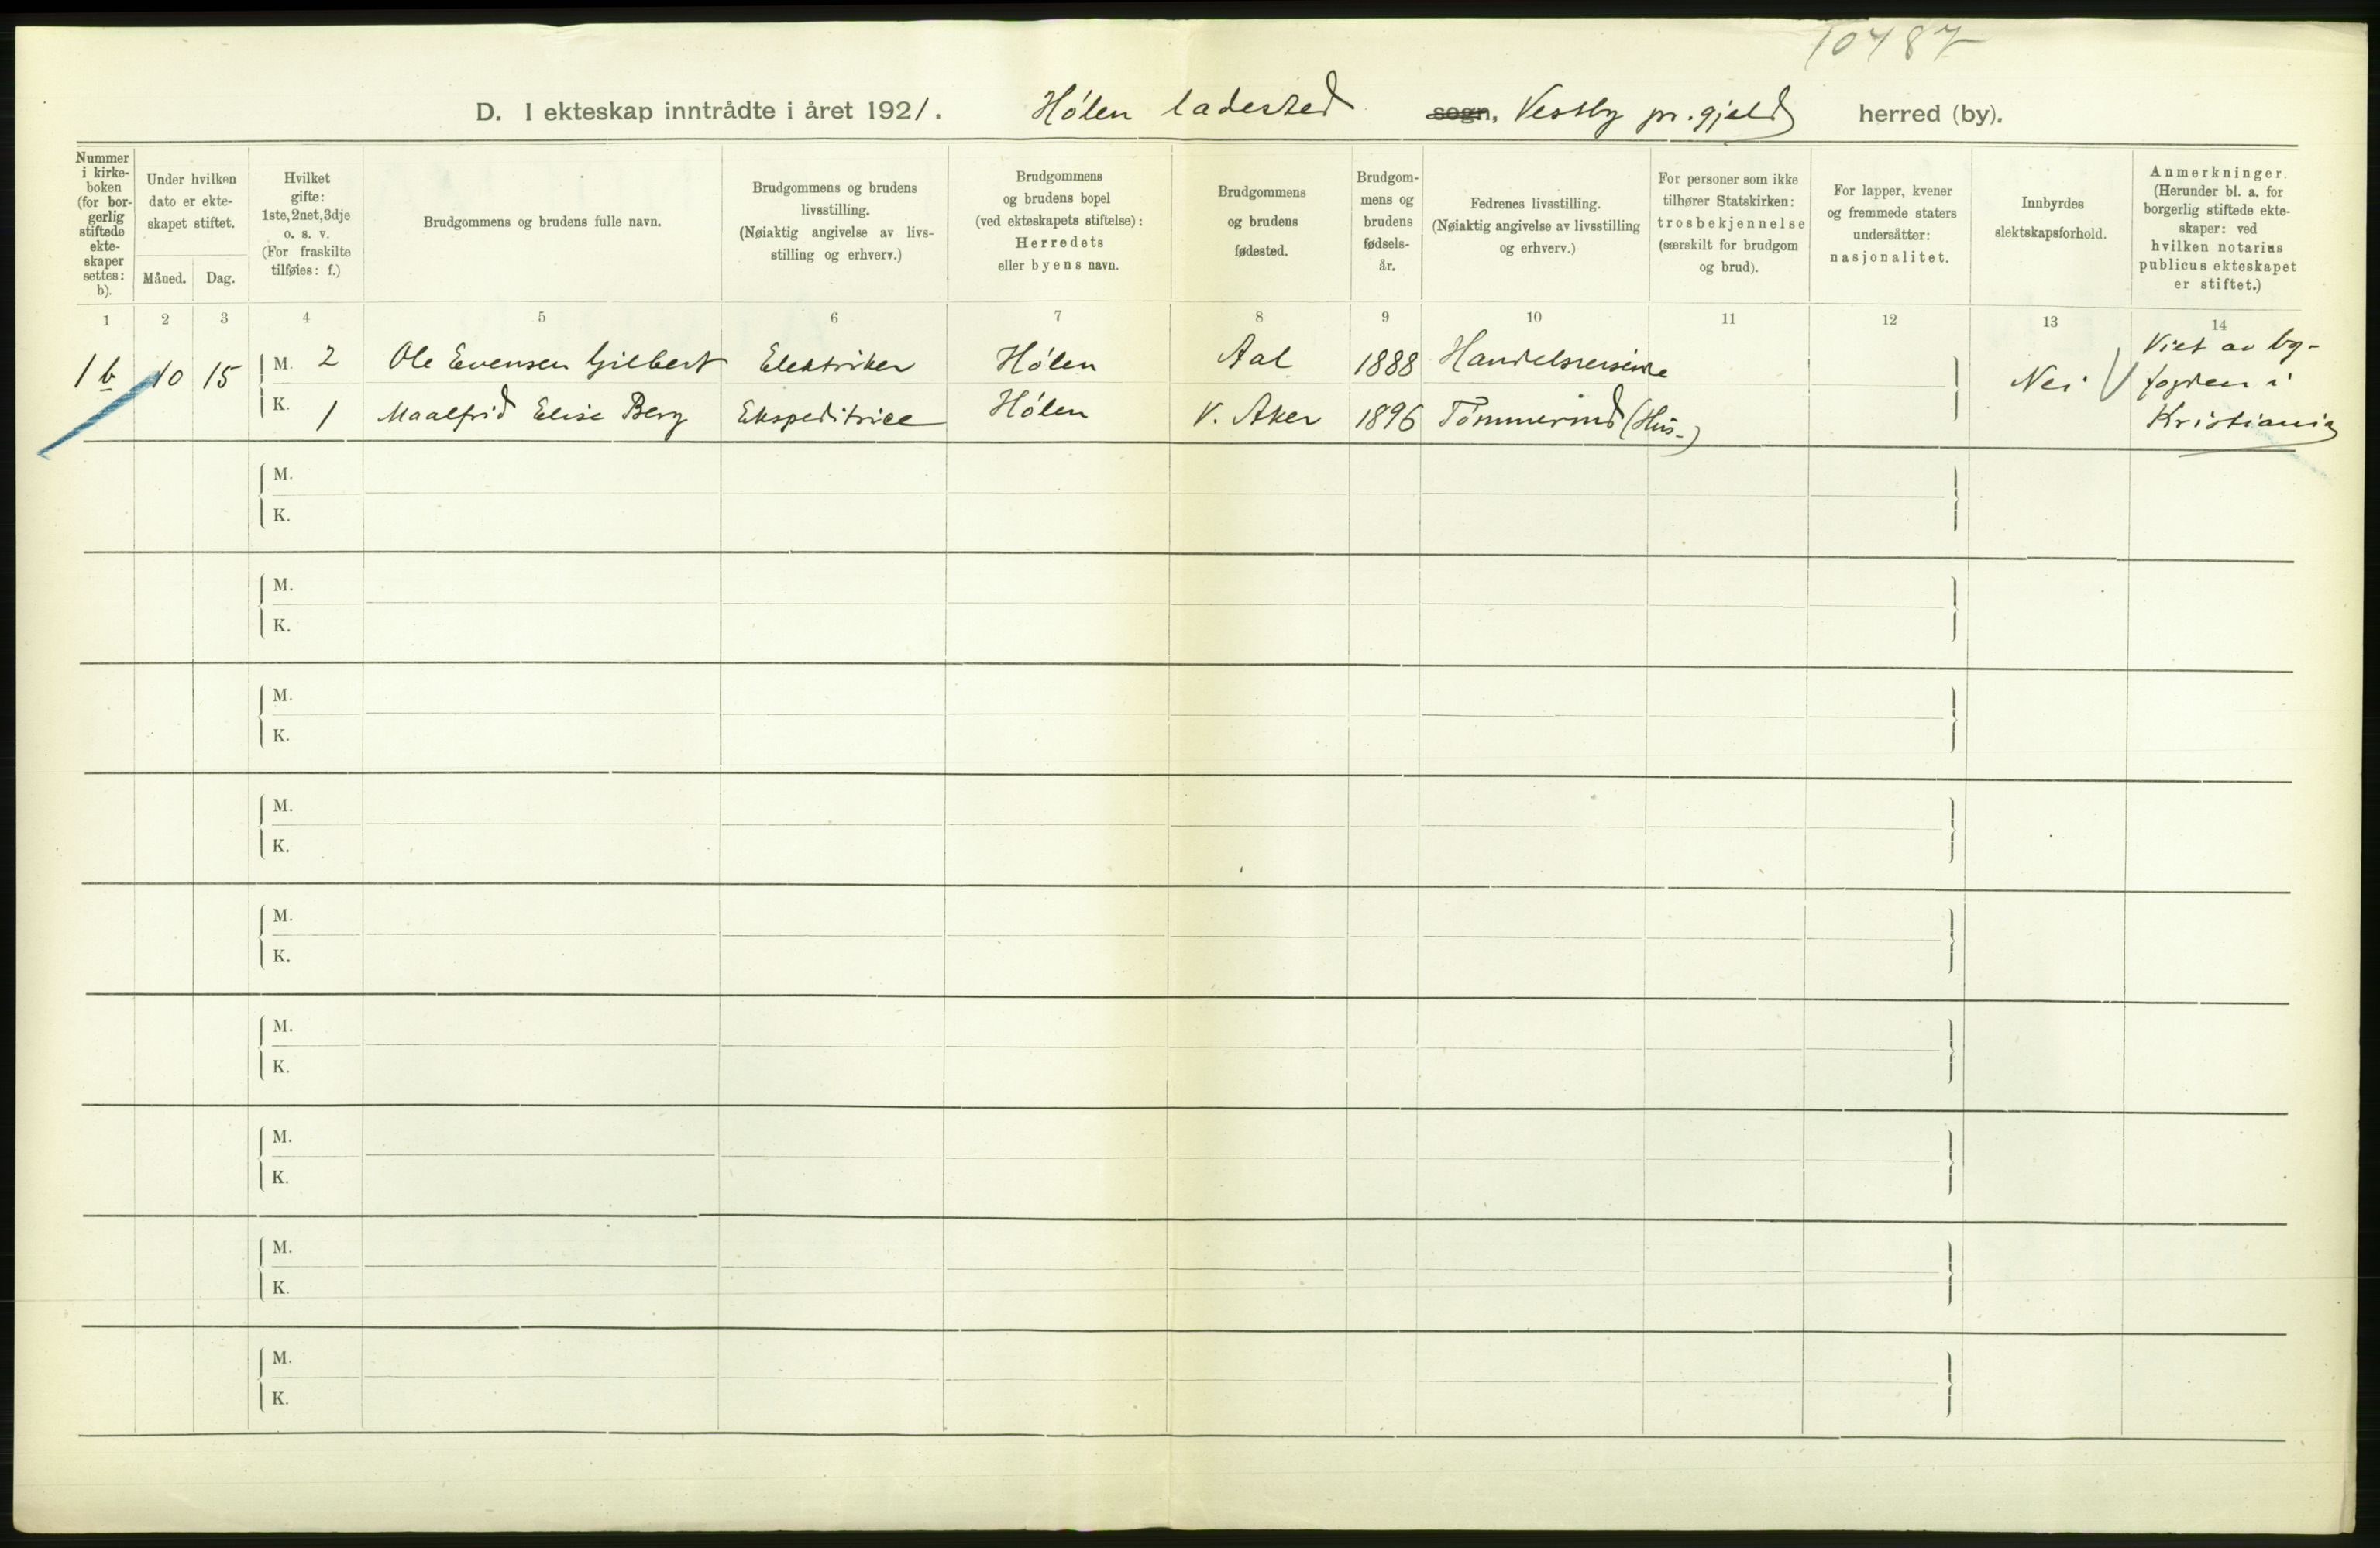 10487
D. I ekteskap inntrådte i året 1921. Hølen ladested sogn, Vestby pr.gjeld herred (by).
Nummer i kirke-boken (for bor-gerlig stiftede ekte-skaper settes: b).
Under hvilken dato er ekte-skapet stiftet.
Måned. Dag.
Hvilket gifte: 1ste, 2net, 3dje o. s. v. (For fraskilte tilføies: f.)
Brudgommens og brudens fulle navn.
Brudgommens og brudens livsstilling. (Nøiaktig angivelse av livs-stilling og erhverv.)
Brudgommens og brudens bopel (ved ekteskapets stiftelse): Herredets eller byens navn.
Brudgommens og brudens fødested.
Brudgom-mens og brudens fødsels-år.
Fedrenes livsstilling. (Nøiaktig angivelse av livsstilling og erhverv.)
For personer som ikke tilhører Statskirken: trosbekjennelse (særskilt for brudgom og brud).
For lapper, kvener og fremmede staters undersåtter: nasjonalitet.
Innbyrdes slektskapsforhold.
Anmerkninger. (Herunder bl. a. for borgerlig stiftede ekte-skaper: ved hvilken notarius publicus ekteskapet er stiftet.)
1 2 3 4 5 6 7 8 9 10 11 12 13 14
1 b 10 15 M. 2 Ole Evensen Gilbert Elektriker Hølen Aal 1888 Handelsreisende Nei Viet av by-fogden i Kristiania
K. 1 Maalfrid Elise Berg Ekspeditrice Hølen V. Aker 1896 Tømmermd (Hus-)
M.
K.
M.
K.
M.
K.
M.
K.
M.
K.
M.
K.
M.
K.
M.
K.
M.
K.